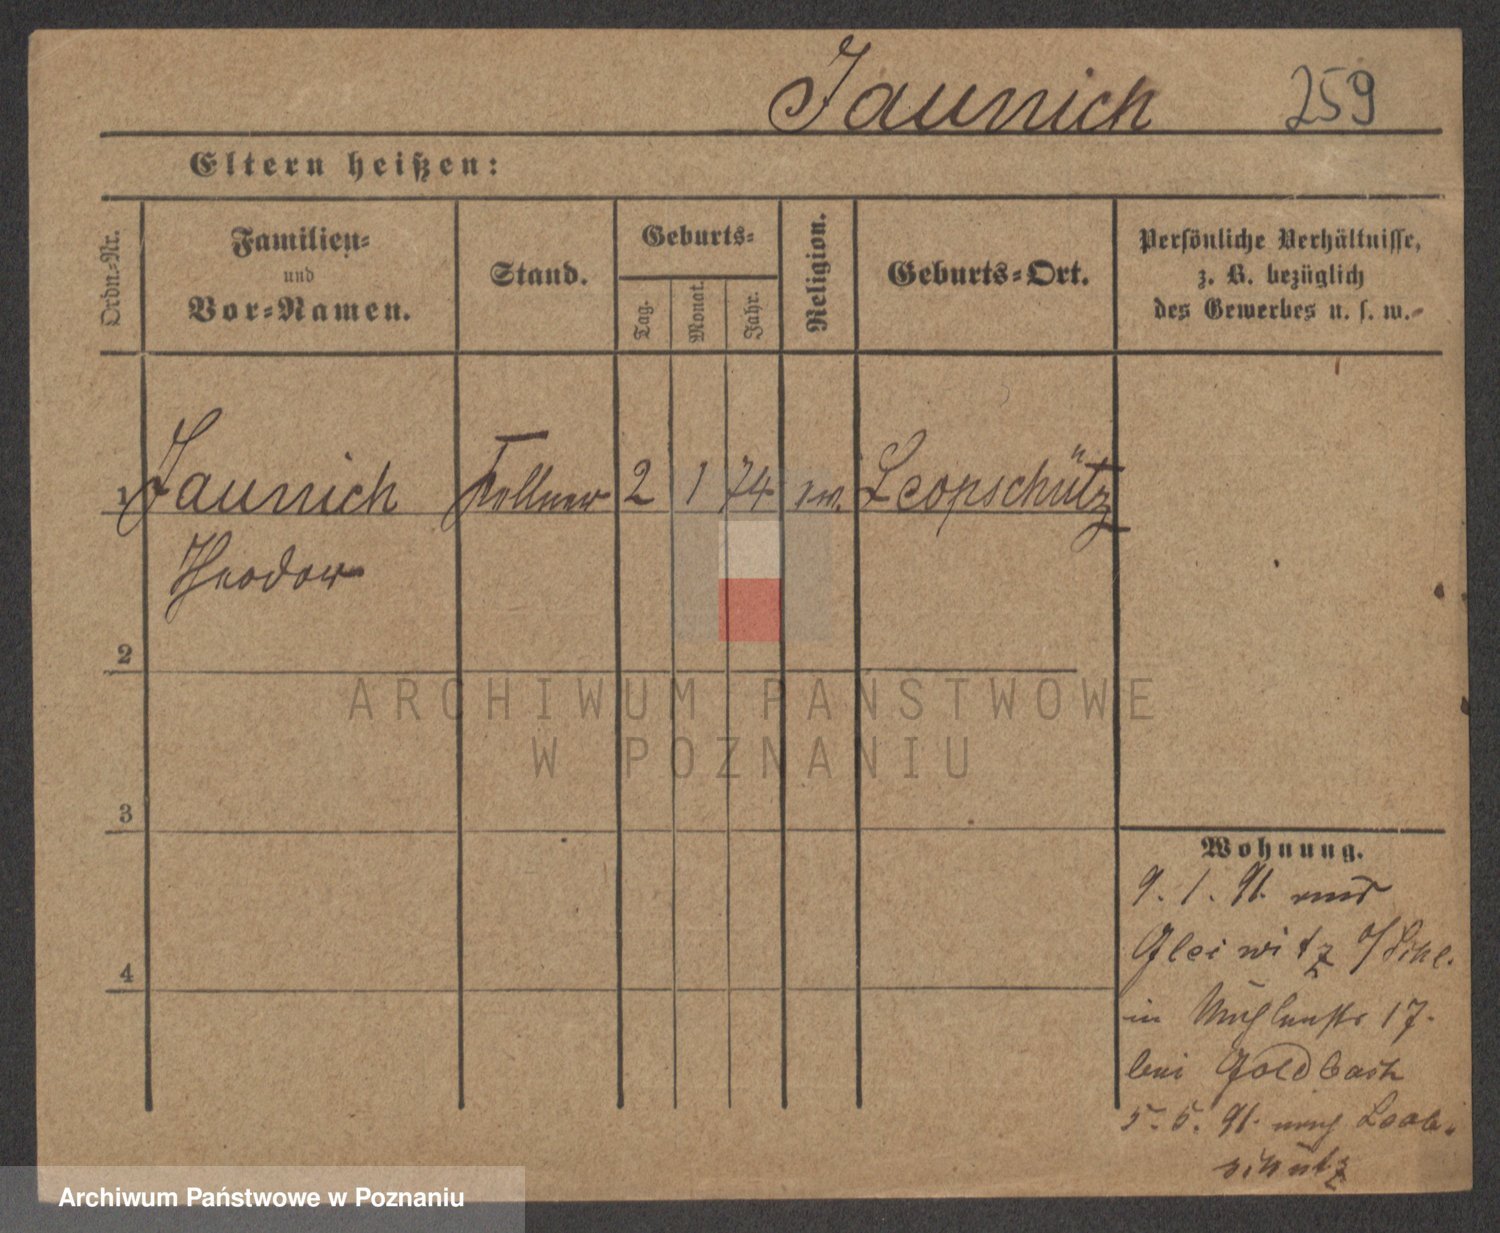 Jaunich 259
Eltern heißen:
Ordn.-Nr.
Familien-
und
Vor-Namen.
Stand.
Geburts-
Tag.
Monat.
Jahr.
Religion.
Geburts-Ort.
Persönliche Verhältnisse,
z. B. bezüglich
des Gewerbes u. s. w.
1 Jaunich Kellner 2 1 74 ev. Leopschütz
Theodor
2
3
4
Wohnung.
9. 1. 91. aus
Gleiwitz O/Schl.
in Mühlenstr 17.
bei Goldbach
5. 5. 91. nach Loob-
schütz
ARCHIWUM PAŃSTWOWE
W POZNANIU
Archiwum Państwowe w Poznaniu